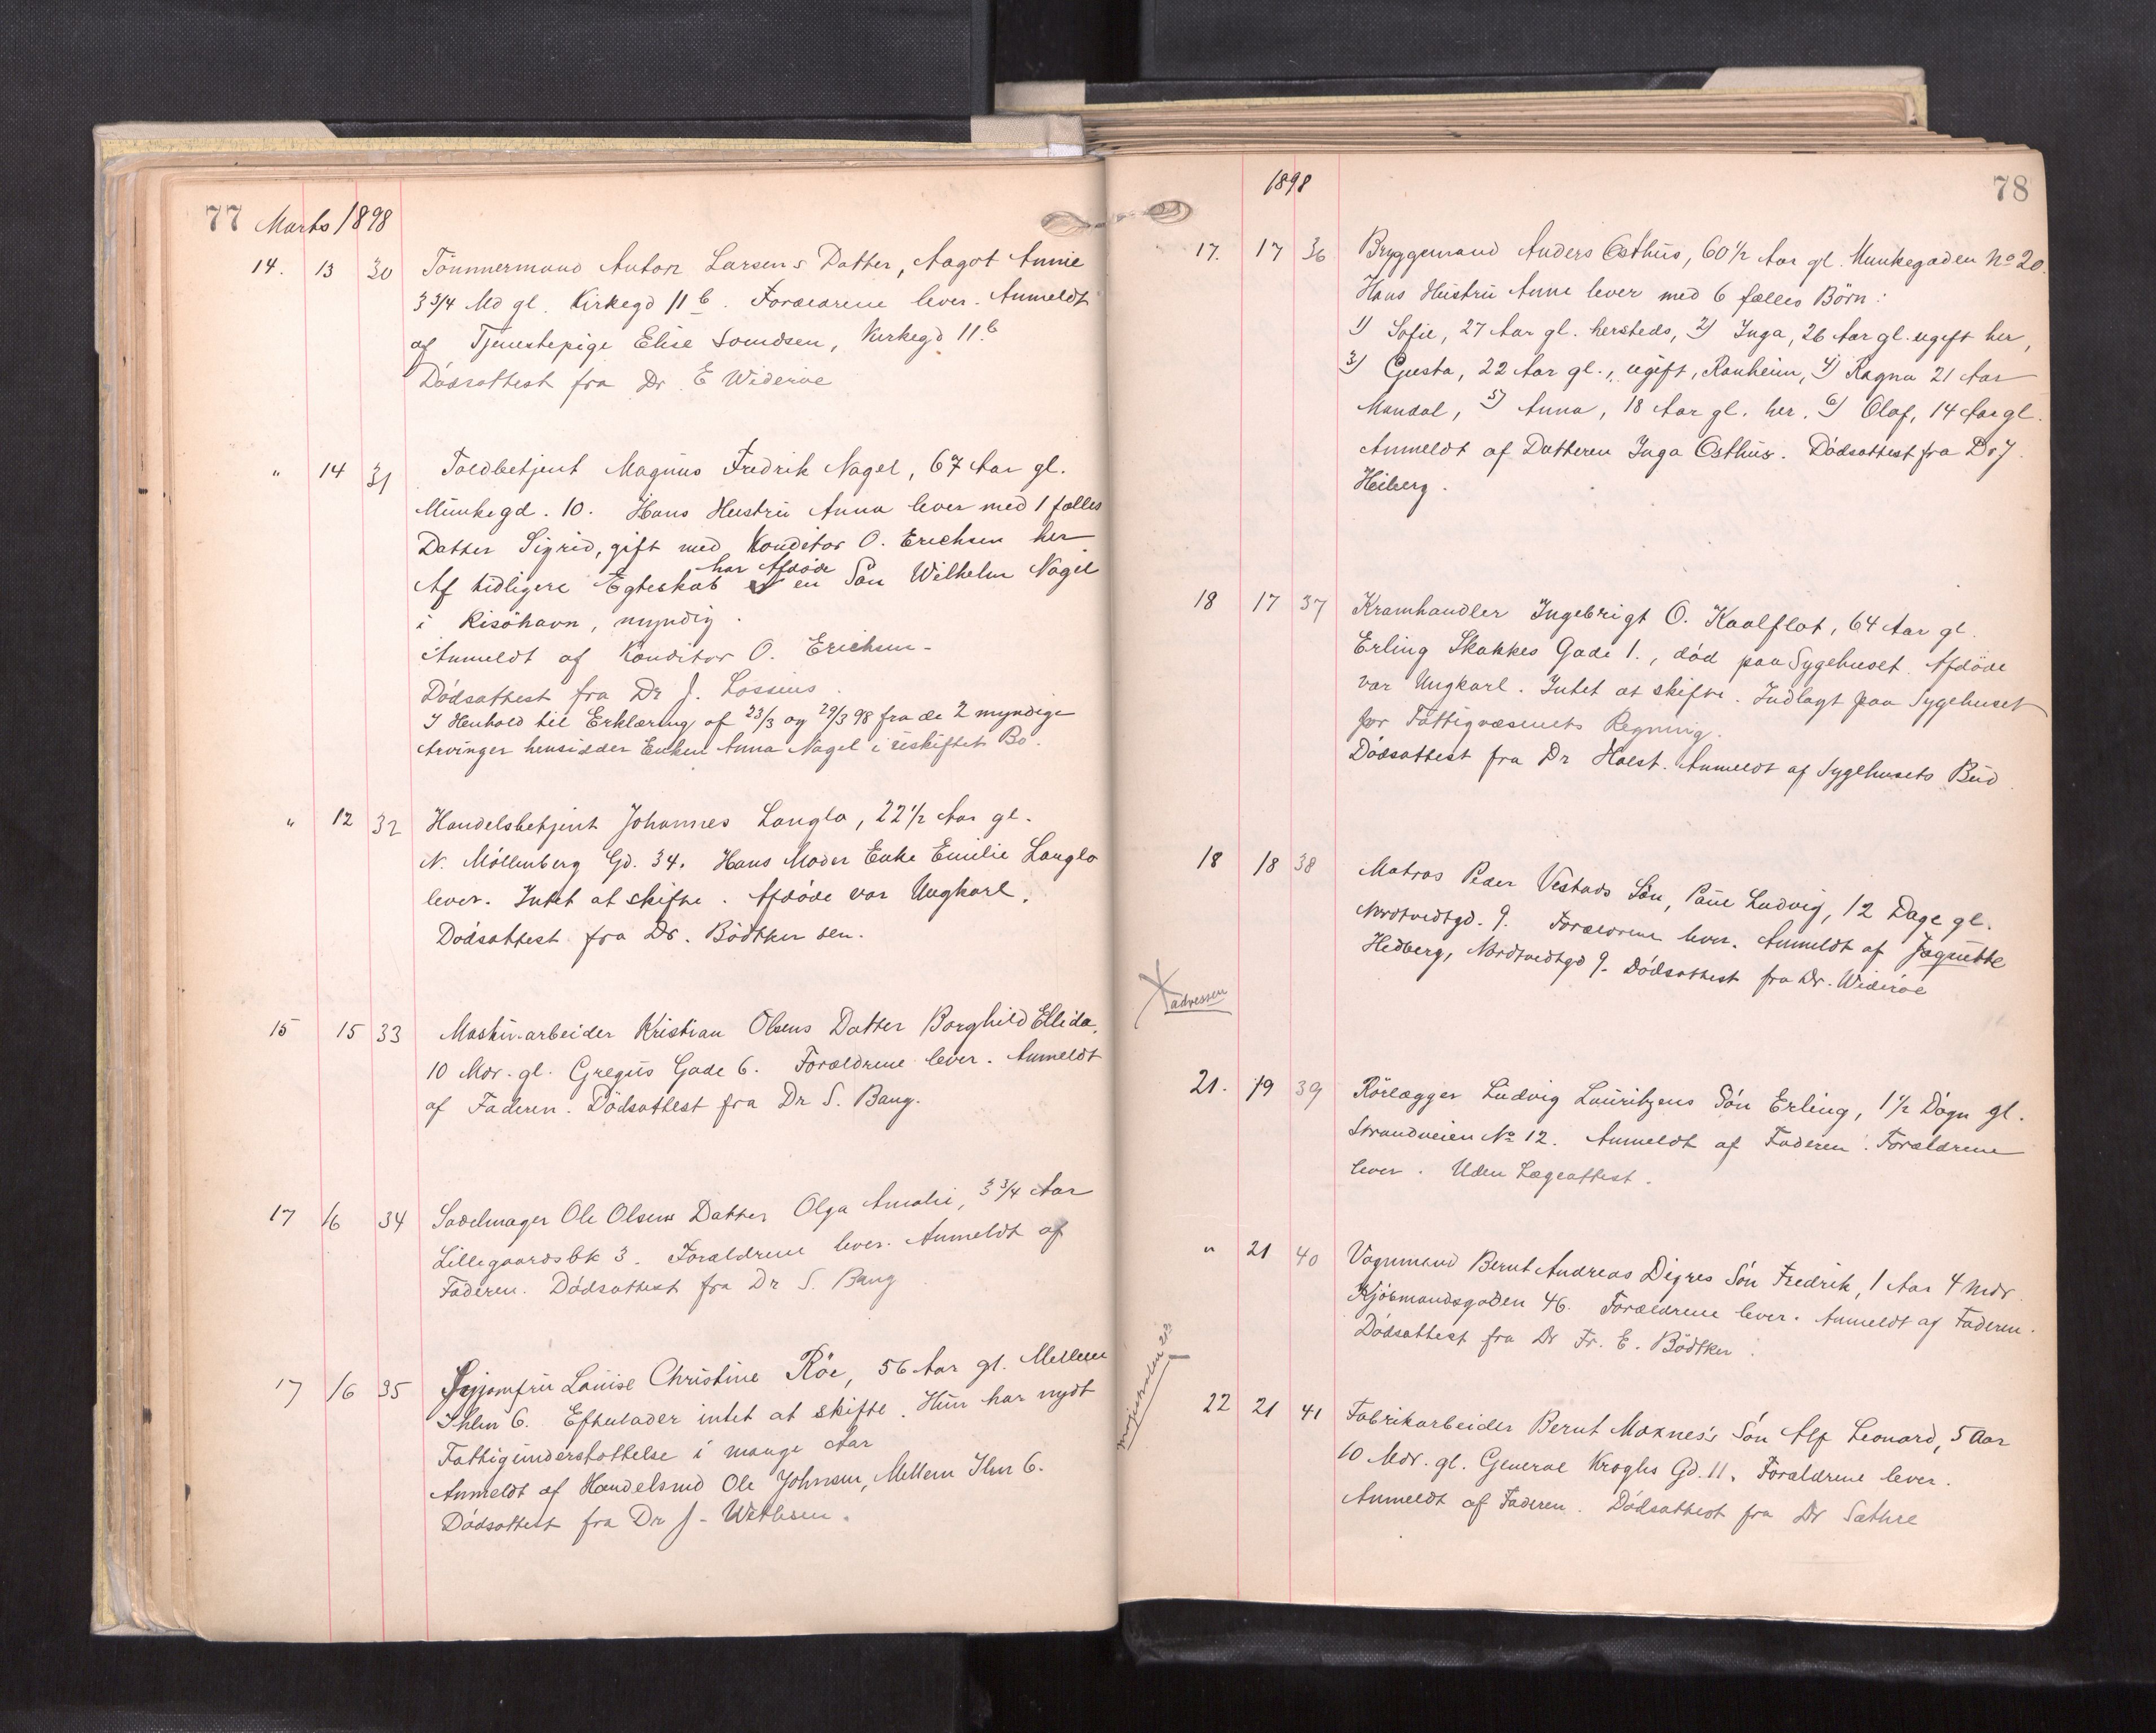 77 Marts 1898
14. 13 30 Tömmermand Anton Larsens Datter, Aagot Annie
3 3/4 Md gl. Kirkegd 11 b. Forældrene lever. Anmeldt
af Tjenestepige Elise Somdsen, Kirkegd 11 b
Dödsattest fra Dr E Wideröe
" 14 31 Toldbetjent Magnus Fredrik Nagel, 67 Aar gl.
Munkegd. 10. Hans Hustru Anna lever med 1 fælles
Datter Sigrid, gift med Konditor O. Erichsen her
har Afdöde
Af tidligere Egteskab en Sön Wilhelm Nagel
i Risöhavn, myndig.
Anmeldt af Konditor O. Erichsen.
Dödsattest fra Dr J. Lossius.
I Henhold til Erklæring af 23/3 og 29/3 98 fra de 2 myndige
Arvinger hensidder Enken Anna Nagel i uskiftet Bo.
" 12 32 Handelsbetjent Johannes Langlo, 22 1/2 Aar gl.
N. Möllenberg Gd. 34. Hans Moder Enke Emilie Langlo
lever. Intet at skifte. Afdöde var Ungkarl.
Dödsattest fra Dr. Bödtker sen.
15 15 33 Maskin-arbeider Kristian Olsens Datter Borghild Ellida,
10 Mdr. gl. Gregus Gade 6. Forældrene lever. Anmeldt
af Faderen. Dödsattest fra Dr S. Bang.
17 16 34 Sadelmager Ole Olsens Datter Olga Amalie, 3 3/4 Aar
Lillegaardsbk 3. Forældrene lever. Anmeldt af
Faderen. Dödsattest fra Dr S. Bang
17 16 35 Syjomfru Louise Christine Röe, 56 Aar gl. Mellem
Ihlen 6. Efterlader intet at skifte. Hun har nydt
Fattigunderstöttelse i mange Aar
Anmeldt af Handelsmd Ole Johnsen, Mellem Ilen 6.
Dödsattest fra Dr J. Wethsen.
1898 78
17. 17 36 Bryggemand Anders Østhus, 60 1/2 Aar gl. Munkegaden No 20.
Hans Hustru Anne lever med 6 fælles Börn:
1) Sofie, 27 Aar gl. hersteds, 2) Inga, 26 Aar gl. ugift her,
3) Gusta, 22 Aar gl., ugift, Ranheim, 4) Ragna 21 Aar
Mandal, 5) Anna, 18 Aar gl. her. 6) Olaf, 14 Aar gl.
Anmeldt af Datteren Inga Østhus. Dödsattest fra Dr J.
Heiberg.
18 17 37 Kramhandler Ingebrigt O. Kaalflot, 64 Aar gl.
Erling Skakkes Gade 1., död paa Sygehuset. Afdöde
var Ungkarl. Intet at skifte. Indlagt paa Sygehuset
for Fattigvæsenets Regning.
Dödsattest fra Dr Holst. Anmeldt af Sygehusets Bud.
18 18 38 Matros Peder Vestads Sön, Paul Ludvig, 12 Dage gl.
Nordtvedtgd. 9. Forældrene lever. Anmeldt af Jaquette
Hedberg, Nordtvedtgd 9. Dödsattest fra Dr. Wideröe
adressen
21. 19 39 Rörlægger Ludvig Lauritzens Sön Erling, 1 1/2 Dögn gl.
Strandveien No 12. Anmeldt af Faderen. Forældrene
lever. Uden Lægeattest.
" 21 40 Vognmand Bernt Andreas Digres Sön Fredrik, 1 Aar 4 Mdr.
Kjöbmandsgaden 46. Forældrene lever. Anmeldt af Faderen.
Dödsattest fra Dr Fr. E. Bödtker.
22 21 41 Fabrikarbeider Bernt Moxnes's Sön Alf Leonard, 5 Aar
10 Mdr. gl. General Kroghs Gd. 11. Forældrene lever.
Anmeldt af Faderen. Dödsattest fra Dr Sæthre